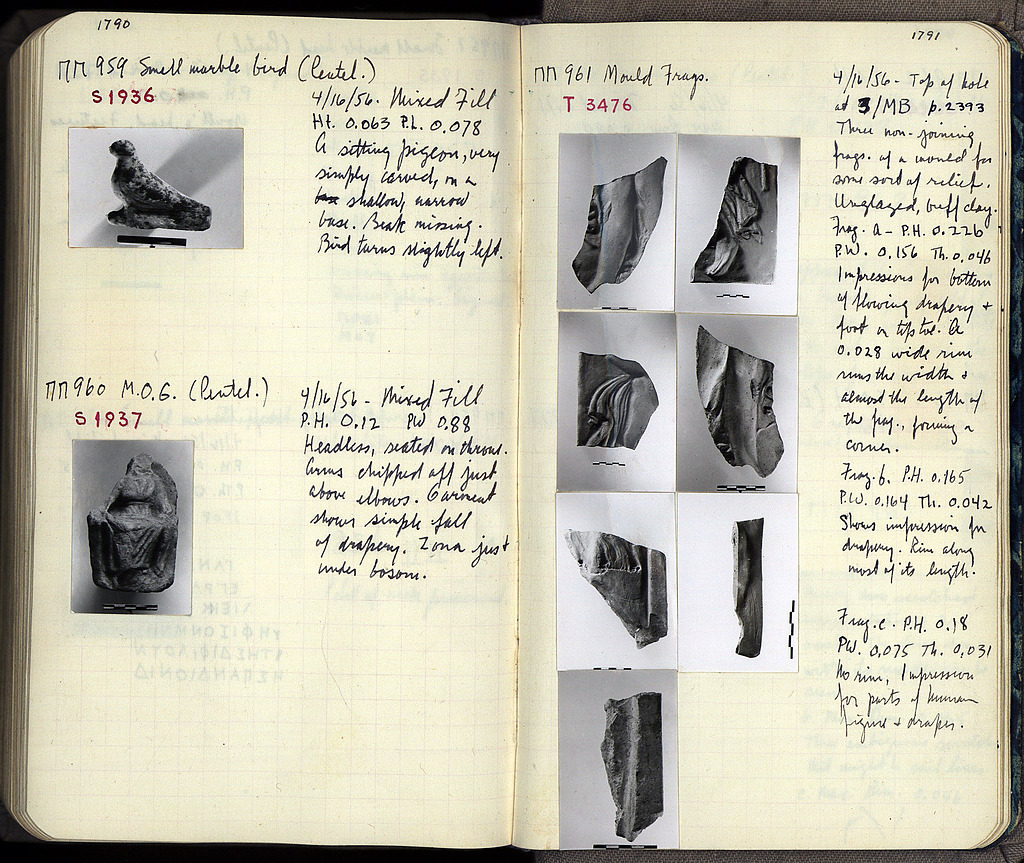 1790
ΠΠ 959 Small marble bird (Pentel.)
S 1936
4/16/56. Mixed Fill
Ht. 0.063 P.L. 0.078
A sitting pigeon, very
simply carved, on a
shallow, narrow
base. Beak missing.
Bird turns slightly left.
ΠΠ 960 M.O.G. (Pentel.)
S 1937
4/16/56 - Mixed Fill
P.H. 0.12 PW 0.88
Headless, seated on throne.
Arms chipped off just
above elbows. Garment
shows simple fall
of drapery. Zona just
under bosom.
1791
ΠΠ 961 Mould Frags.
T 3476
4/16/56 - Top of hole
at 3/MB p. 2393
Three non-joining
frags. of a mould for
some sort of relief.
Unglazed, buff clay.
Frag. a - P.H. 0.226
P.W. 0.156 Th. 0.046
Impressions for bottom
of flowing drapery +
foot on tiptoe. A
0.028 wide rim
runs the width +
almost the length of
the frag., forming a
corner.
Frag. b. P.H. 0.165
P.W. 0.164 Th. 0.042
Shows impression for
drapery. Rim along
most of its length.
Frag. c. P.H. 0.18
PW. 0.075 Th. 0.031
No rim, Impression
for parts of human
figure + drapes.